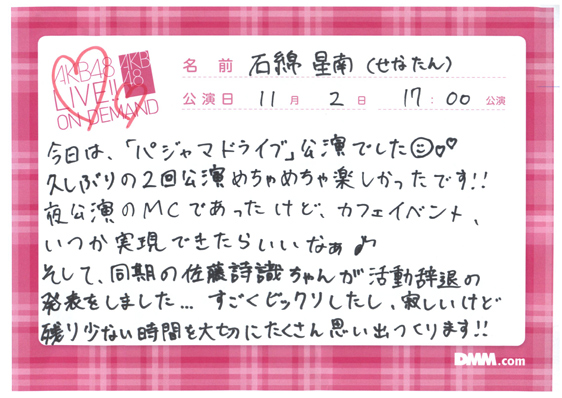 AKB48
LIVE!!
ON DEMAND
AKB
48
名前 石綿 星南(せなたん)
公演日 11月 2日 17:00 公演
今日は、「パジャマドライブ」公演でした
久しぶりの2回公演めちゃめちゃ楽しかったです!!
夜公演のMCであったけど、カフェイベント、
いつか実現できたらいいなぁ♪
そして、同期の佐藤詩識ちゃんが活動辞退の
発表をしました... すごくビックリしたし、寂しいけど
残り少ない時間を大切にたくさん思い出つくります!!
DMM.com